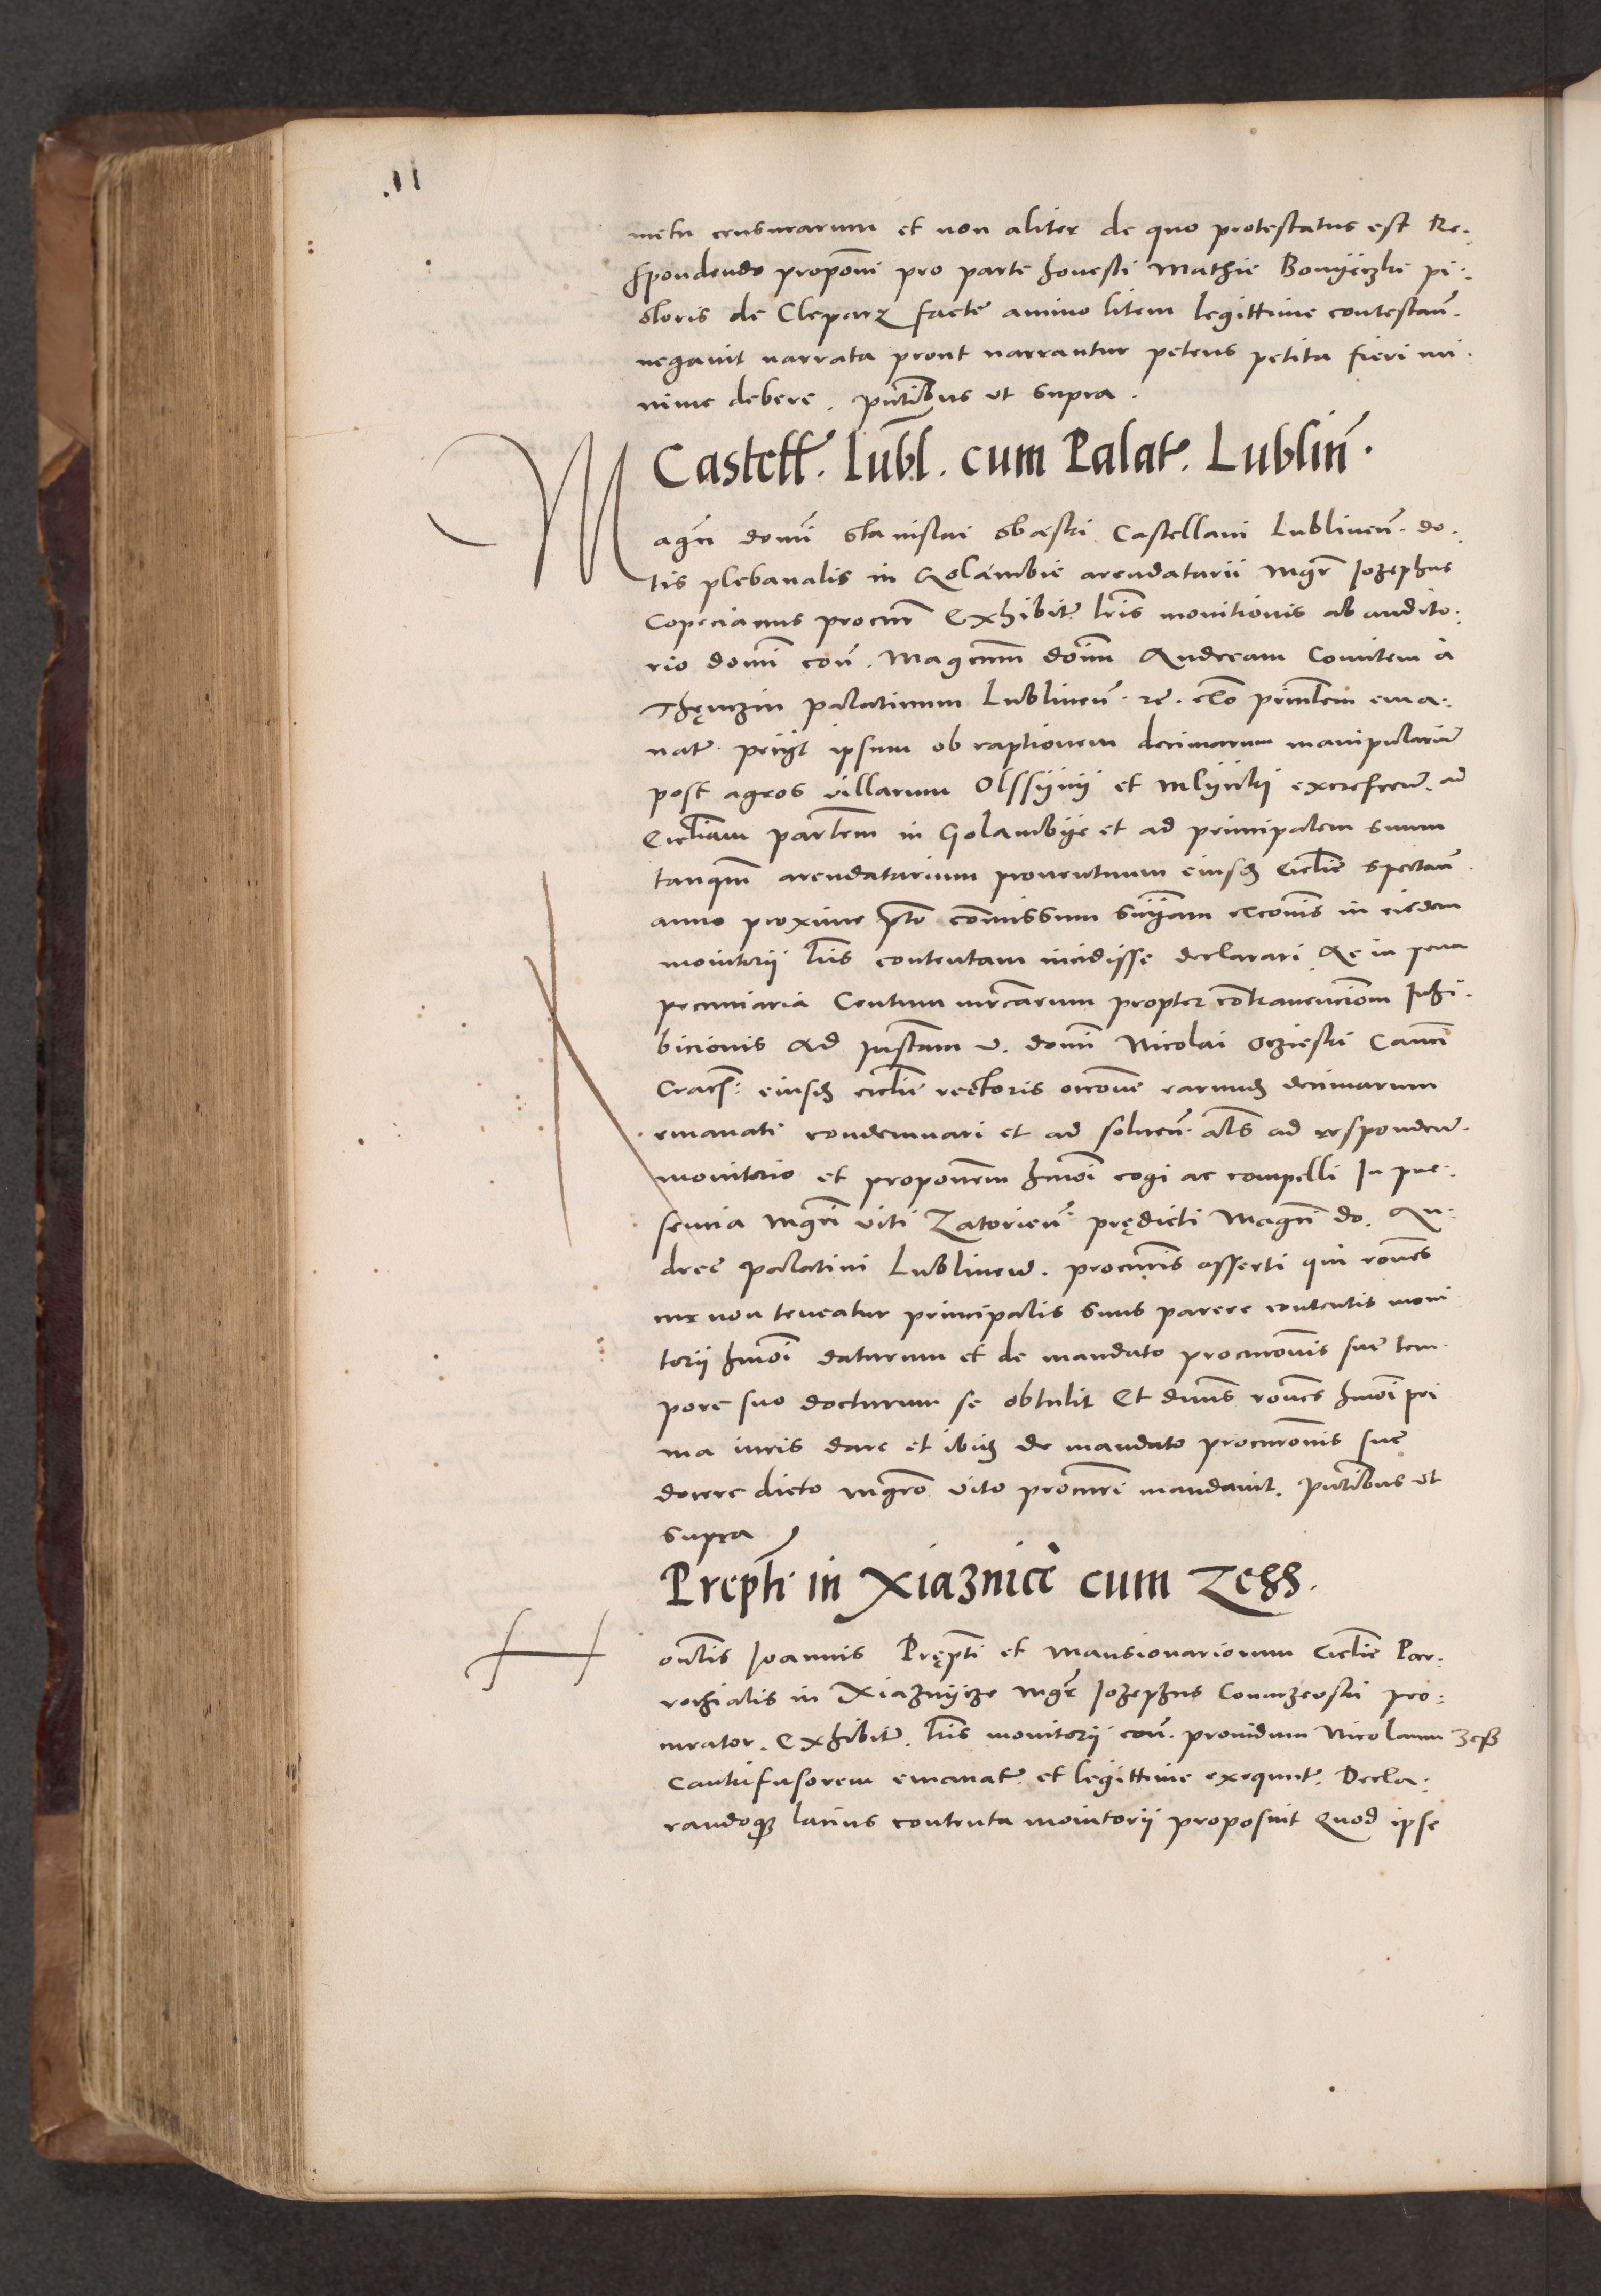 11.
metu censurarum et non aliter de quo protestatus est Re-
spondendo proponi pro parte honesti Mathie Bonyeczki pi-
storis de Cleparz facte animo litem legittime contestan.
negavit narrata prout narrantur petens petita fieri mi-
nime debere. pntibus ut supra.
Castell. Lubl. cum Palat. Lublin.
Magci domi Stanislai Castellani Lublinen. do-
tis plebanalis in Golambie arendatarii Mgr Jozephus
Copecianus procur Exhibit. lris monitionis ab audito-
rio domi con. Magcum doim Andream Comitem à
Thęnczin palatinum Lublinen. principalem ema-
nat. petyt ipsum ob raptionem decimarum manipularium
post agros villarum Olssyny et Mlynki excrescen. ad
Eccliam in Golambye et ad principalem suum
tanqm arendatarium proventuum eiusd Ecclie spectan.
anno proxime pto commissum snyam exconis in eisdem
monitorii lris contentam incidisse declarari Ac in pena
pecuniaria Centum mrcarum propter contravencionem Inhi-
bicionis Ad Instam v. domi Nicolai Canci
Cracs. eiusd ecclie rectoris occone earund decimarum
emanati condemnari et ad solven. als ad responden.
monitorio et proponem hmoi cogi ac compelli In pre-
sencia Mgri viti Zatorien. prędicti Magci do. An-
dree palatini Lublinen. procuris asserti qui rones
cur non teneatur principalis suus parere contentis moni
torii hmoi daturum et de mandato procuronis sue tem-
pore suo docturum se obtulit Et dnus rones hmoi pri
ma iuris dare et ibid de mandato procuronis sue
docere dicto Mgro vito procuri mandavit. pntibus ut
supra
Prepti in Xiaznice cum Zess.
Honblis Joannis Prępti et Mansionariorum Ecclie Par-
rochialis in Xiaznycze Mgr Jozephus procu-
rator. Exhibit. lris monitorii con. providum Nicolaum Zess
Cantrifusorem emanat. et legittime exequut. Decla-
randoq lacius contenta monitorii proposuit Quod ipse